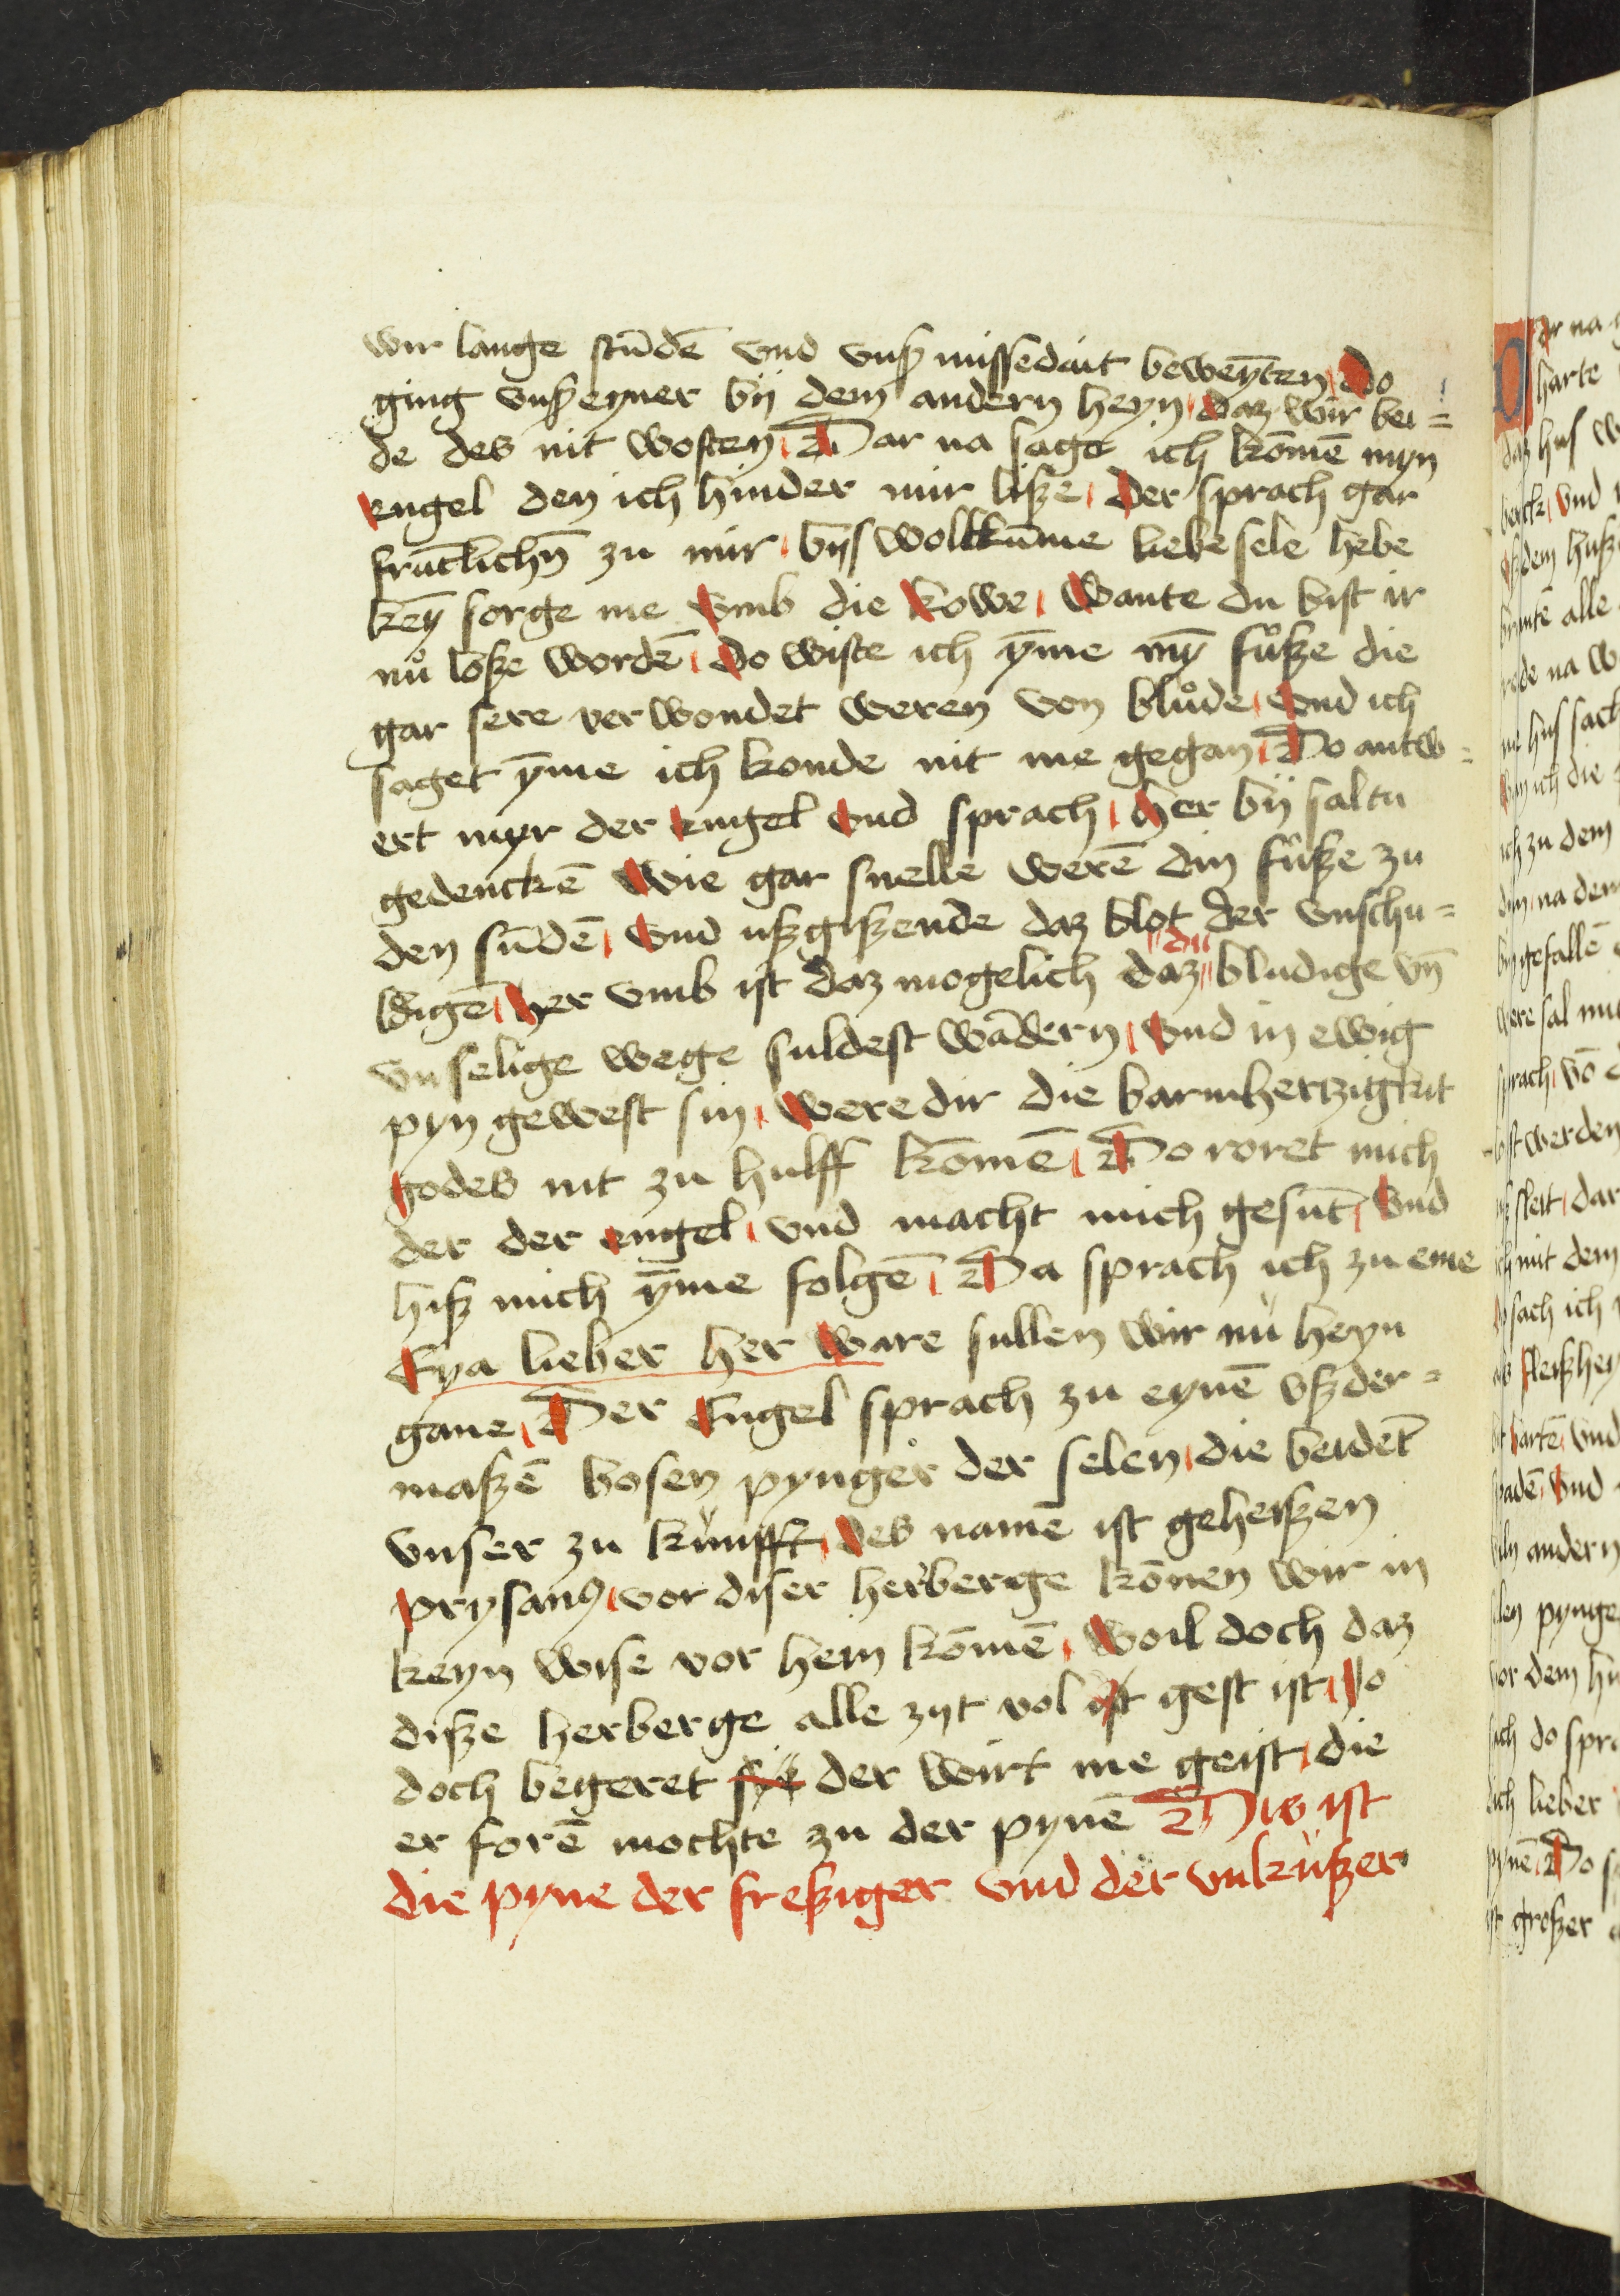 wir lange stūdē vnd vnß missedait beweȳten Do
ging vnß eyner bij dem andern heyn daz wir bei=
de des nit wosten Dar na sage ich kōmē myn
Engel den ich hinder mir lisze Der sprach gar
frūtlichn̄ zu mir bijs wolkkūme liebe sele hebe
keȳ sorge me vmb die kowe Wante du bist ir
nů losze wordē Do wiste ich ȳme mȳ fůsze die
gar sere verwondet weren von blůde vnd ich
saget ȳme ich konde nit me gegan Do antw=
ert myr der engel vnd sprach Her bij saltu
gedenckē Wie gar snelle werē din fůsze zu
den sūdē vnd uszgiszende daz blot der vnschu=
ldigē Her vmb ist daz mogelich daz du bludige vn̄
vnselige wege suldest wādern vnd in ewig
pyn gewest sin Were dir die barmhertzigkeit
godes nit zu hulff komē Do roret mich
der der engel vnd macht mich gesūt vnd
hisz mich ȳme folgē Da sprach ich zu eme
Eya lieber her Ware sullen wir nů heyn
gane Der Engel sprach zu eynē vszder=
maszē bosen pynger der selen die beidēt
vnser zu kunfft Des namē ist geheiszen
prysanꝰ vor diser herberge kōnen wir in
keyn wise vor hem kōmē Woil doch daz
disze herberge alle zijt vol ist gest ist so
doch begeret sye der wirt me geist die
er forē mochte zu der pynē Diß ist
die pyne der fresziger vnd der vnkuszer